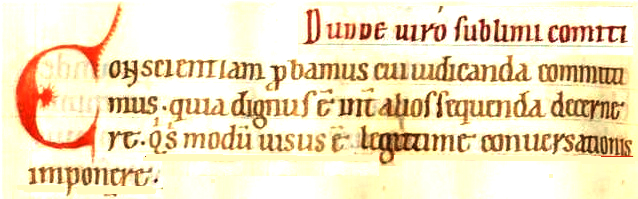 Dunde uiro sublimi comiti
Conscientiam ꝓbamus cui iudicanda committi
mus. quia dignus ē int̄ alios sequenda decerne
re. q̇s modū uisus ē legittime conuersationis
imponere.